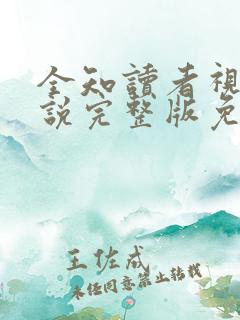 全知讀者視
說完整版免
王佐成
未経同意禁止转载